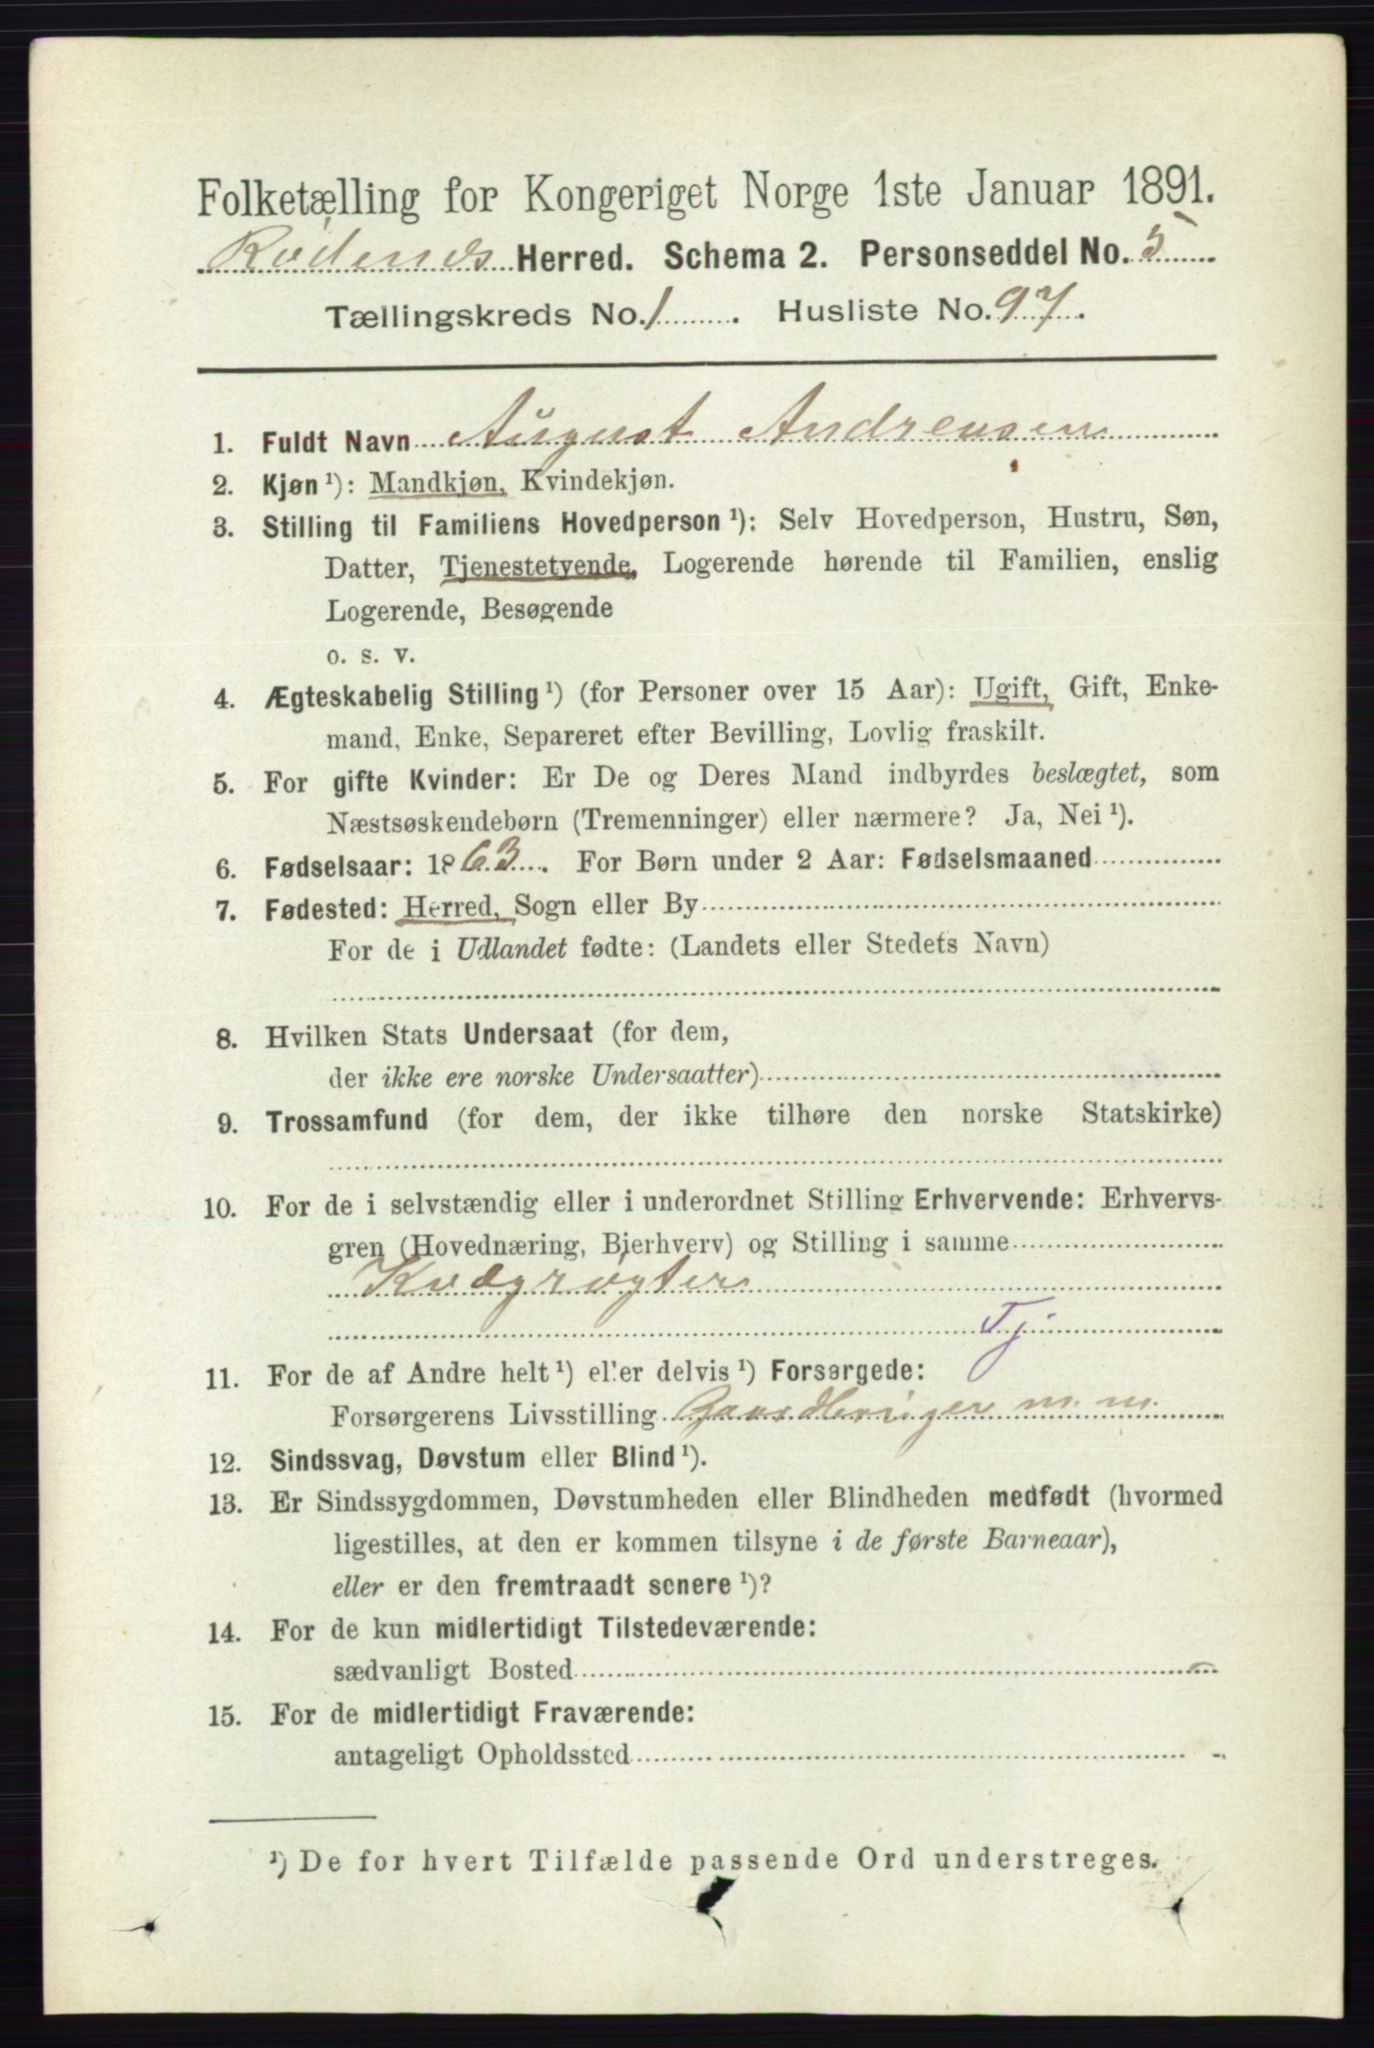 Folketælling for Kongeriget Norge 1ste Januar 1891.
Rødenes Herred. Schema 2. Personseddel No. 5
Tællingskreds No. 1. Husliste No. 97.
1. Fuldt Navn August Andreasen
2. Kjøn¹): Mandkjøn, Kvindekjøn.
3. Stilling til Familiens Hovedperson¹): Selv Hovedperson, Hustru, Søn,
Datter, Tjenestetyende, Logerende hørende til Familien, enslig
Logerende, Besøgende
o. s. v.
4. Ægteskabelig Stilling¹) (for Personer over 15 Aar): Ugift, Gift, Enke-
mand, Enke, Separeret efter Bevilling, Lovlig fraskilt.
5. For gifte Kvinder: Er De og Deres Mand indbyrdes beslægtet, som
Næstsøskendebørn (Tremenninger) eller nærmere? Ja, Nei¹).
6. Fødselsaar: 1863. For Børn under 2 Aar: Fødselsmaaned
7. Fødested: Herred, Sogn eller By
For de i Udlandet fødte: (Landets eller Stedets Navn)
8. Hvilken Stats Undersaat (for dem,
der ikke ere norske Undersaatter)
9. Trossamfund (for dem, der ikke tilhøre den norske Statskirke)
10. For de i selvstændig eller i underordnet Stilling Erhvervende: Erhvervs-
gren (Hovednæring, Bierhverv) og Stilling i samme
Kvægrøgter
Tj
11. For de af Andre helt¹) eller delvis¹) Forsørgede:
Forsørgerens Livsstilling m. m.
12. Sindssvag, Døvstum eller Blind¹).
13. Er Sindssygdommen, Døvstumheden eller Blindheden medfødt (hvormed
ligestilles, at den er kommen tilsyne i de første Barneaar),
eller er den fremtraadt senere¹)?
14. For de kun midlertidigt Tilstedeværende:
sædvanligt Bosted
15. For de midlertidigt Fraværende:
antageligt Opholdssted
¹) De for hvert Tilfælde passende Ord understreges.